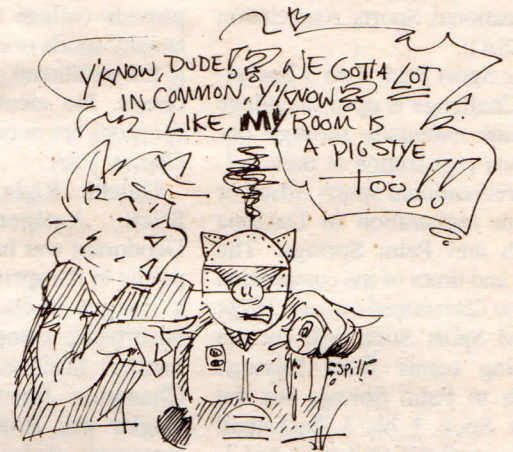 Y'KNOW, DUDE!? WE GOTTA LOT
IN COMMON, Y'KNOW?
LIKE, MY ROOM IS
A PIGSTYE
TOO!!
spill!